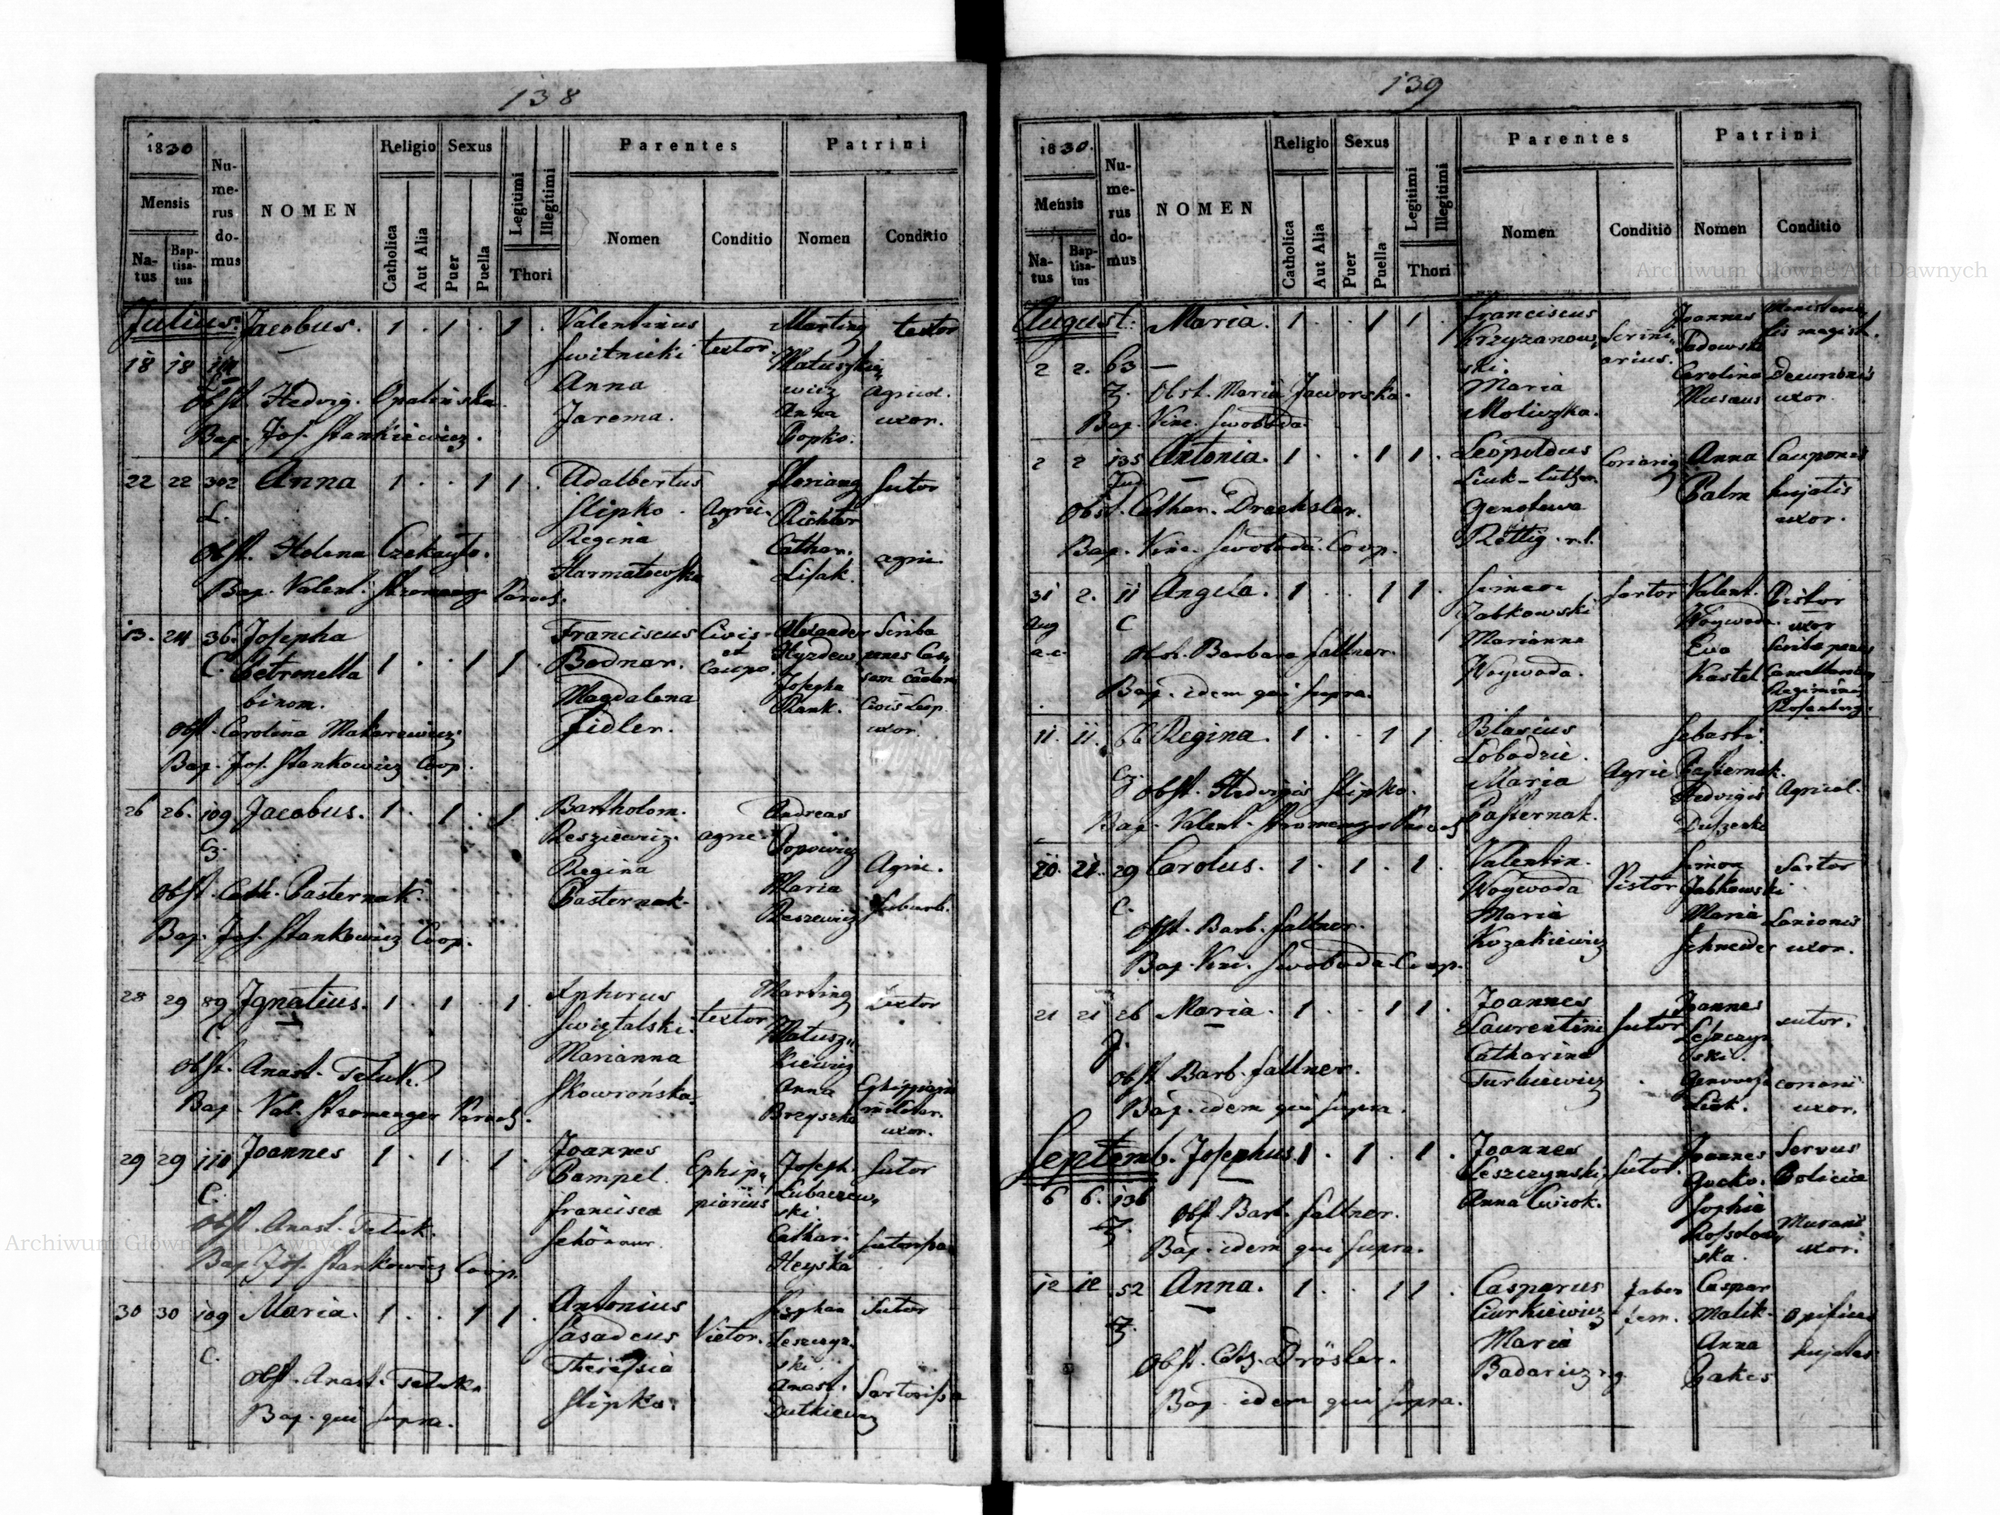 138
1830
Mensis
Na-
tus
Bap-
tisa-
tus
Nu-
me-
rus
do-
mus
NOMEN
Religio
Catholica
Aut Alia
Sexus
Puer
Puella
Legitimi
Illegitimi
Thori
Parentes
Nomen
Conditio
Patrini
Nomen
Conditio
Julius. Jacobus. 1 . 1 . 1 . Valentinus
textor. textor
18 18
Anna
Jarema.
Matuszkie
wicz
Anna
Popko.
agricol.
uxor.
Obst. Hedvig. Opalinska
Bap. Jos. Stankiewicz.
22 22 302 Anna 1 . . 1 1 . Adalbertus
L. Slipko . Agric.
Regina
Harmatowska
Richter
Cathar.
Lisak.
Sutor
agric.
Obst. Helena
Bap. Valent. Stromenger Paroch.
13. 24 36. Josepha
C. Petronella 1 . . 1 1
binom.
Franciscus
Bodnar.
Magdalena
Fidler.
Civis
et
Caupo.
Alexander
Josepha
Plank.
Scriba
Civis Leop.
uxor.
Obst. Carolina Makarewicz
Bap. Jos. Stankowicz Coop.
26 26. 109 Jacobus. 1 . 1 . 1 Bartholom.
Reszciewicz. agric.
Regina
Pasternak.
Andreas
Popowicz
Maria
Reszewicz
Agric.
suburb.
Obst. Cath. Pasternak.
Bap. Jos. Stankowicz Coop.
28 29 89 Ignatius. 1 . 1 . 1.
C.
Swiztalski. textor
Marianna
Skowrońska.
Matusz
kiewicz
Anna
textor
uxor.
Obst. Anast. Teluk.
Bap. Val. Stromenger Paroch.
29 29 110 Joannes 1 . 1 . 1 . Joannes
C. Pampel.
Francisca
Ephip
piarius
Joseph.
Lubaczew
ski.
Cathar.
Heyska
Sutor
Sutorissa
Obst. Anast. Teluk.
Bap. Jos. Stankowicz Coop.
30 30 109 Maria. 1 . . 1 1 . Antonius
C. Sasadeus Vietor.
Theresia
Slipko.
Stephan
Leszczyn
ski.
Anast.
Dutkiewicz
Sutor
Sartorissa
Obst. Anast. Teluka
Bap. qui supra.
139
1830.
Mensis
Na-
tus
Bap-
tisa-
tus
Nu-
me-
rus
do-
mus
NOMEN
Religio
Catholica
Aut Alia
Sexus
Puer
Puella
Legitimi
Illegitimi
Thori
Parentes
Nomen
Conditio
Patrini
Nomen
Conditio
August. Maria. 1 . . 1 1 . Franciscus
Krzyzanow
ski.
Maria
Moliczka.
Scrini
arius.
Joannes
Sadowski
Carolina
Musaus
magist.
Decurionis
uxor.
2 2. 63
Obst. Maria Jaworska.
Bap. Vinc. Swoboda
2 2 135 Antonia. 1 . . 1 1 . Leopoldus
Genofewa
Röttig. r. l.
Coriarig
Anna
Palm
Cauponis
hujatis
uxor.
Obst. Cathar. Drechsler.
Bap. Vinc. Swoboda Coop.
31 2. 11 Angela. 1 . . 1 1 . Simeon
Aug
a.c.
C
Jabkowski
Marianna
Woywoda.
Sartor
Valent.
Woywoda.
Eva
Kastel
Pistor
uxor
Obst. Barbara Fallner.
Bap. idem qui supra.
11. 11. 66 Regina. 1 . . 1 1 . Blasius
Lobodzic.
Maria
Pasternak.
Agric
Sebasti.
Pasternak.
Hedvigis
Agricol.
Obst. Hedvigis Slipko.
Bap. Valent. Stromenger Paroch
20. 21. 29 Carolus. 1 . 1 . 1 . Valentin.
C.
Woywoda
Maria
Kozakiewicz
Pistor
Simon
Jabkowski
Maria
Schneider
Sartor
Lanionis
uxor.
Obst. Barb. Fallner.
Bap. Vinc. Swoboda Coop.
21 21 26 Maria. 1 . . 1 1 . Joannes
Laurentini
Catharina
Turkiewicz
Sutor
Joannes
Leszczyn
ski.
sutor.
coriarii
uxor.
Obst Barb. Fallner.
Bap. idem qui supra.
Septemb. Josephus 1 . 1 . 1 . Joannes
Leszczynski. sutor.
6 6. 136
Anna Cwiok.
Joannes
Gocko.
Sophia
Rossolow
ska.
Servus
Policia
Murarii
uxor.
Obst. Barb. Fallner.
Bap. idem qui supra.
12 12 52 Anna. 1 . . 1 1 . Casparus
Ciurkiewicz
Maria
Faber
ferr.
Caspar
Malik.
Anna
Cakes
Opifices
hujates
Obst. Drösler.
Bap. idem qui supra.
Archiwum Główne Akt Dawnych
Archiwum Główne Akt Dawnych